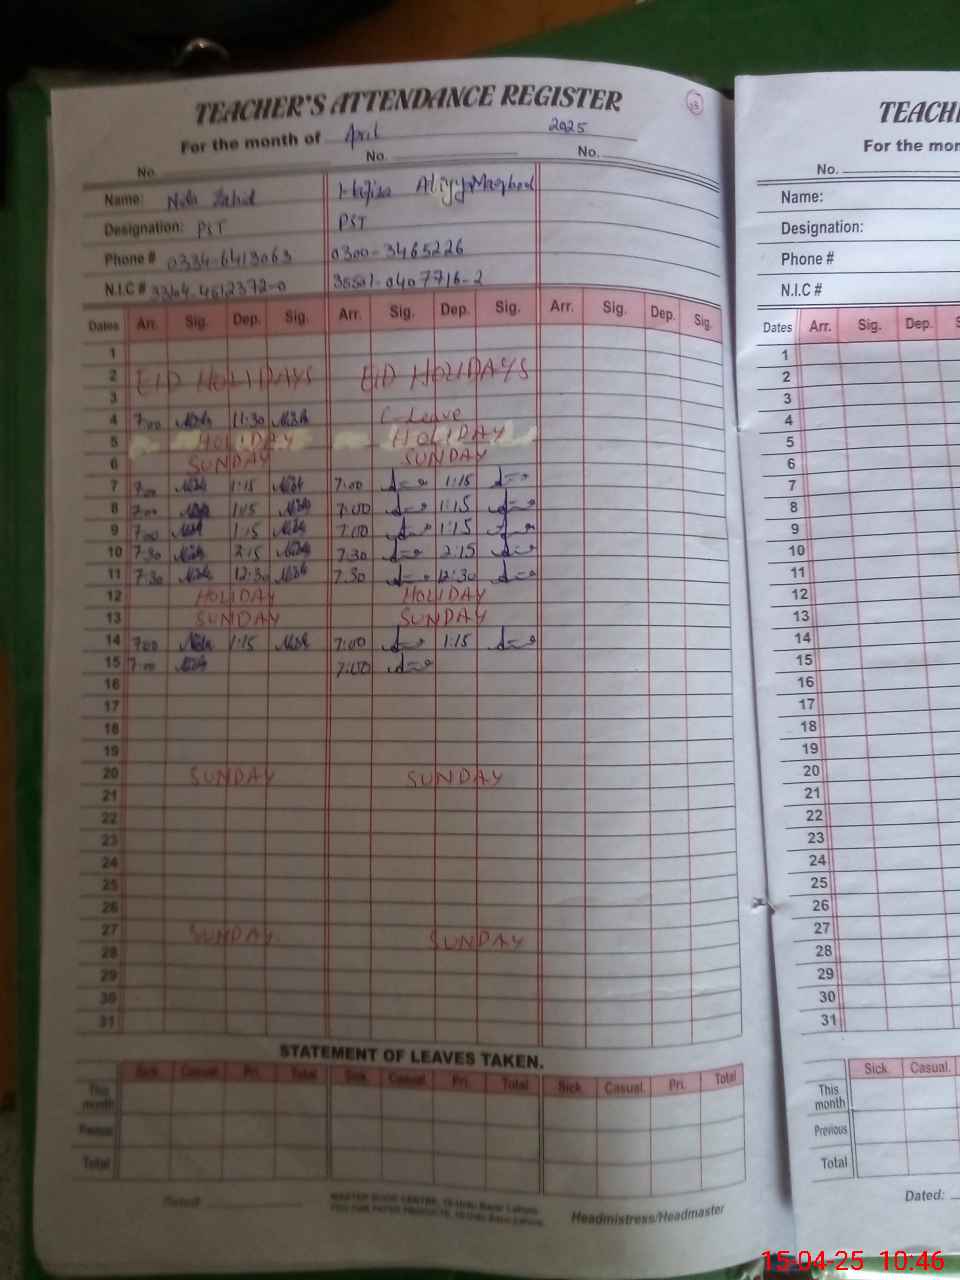 TEACHER'S ATTENDANCE REGISTER
For the month of April 2025
No. No. No.
Name: Nida Zahid Hafiza
Designation: PST PST
Phone # 0334-6413063 0300-3465226
N.I.C #
Dates Arr. Sig. Dep. Sig. Arr. Sig. Dep. Sig. Arr. Sig. Dep. Sig.
1
2 EID HOLIDAYS EID HOLIDAYS
3
4 7:00 11:30 C-Leave
5 HOLIDAY HOLIDAY
6 SUNDAY SUNDAY
7 7:00 1:15 7:00 1:15
8 7:00 1:15 7:00 1:15
9 7:00 1:15 7:00 1:15
10 7:30 2:15 7:30 2:15
11 7:30 12:30 7:30 12:30
12 HOLIDAY HOLIDAY
13 SUNDAY SUNDAY
14 7:00 1:15 7:00 1:15
15 7:00 7:00
16
17
18
19
20 SUNDAY SUNDAY
21
22
23
24
25
26
27 SUNDAY SUNDAY
28
29
30
31
STATEMENT OF LEAVES TAKEN.
Sick Casual. Pri. Total Sick Casual. Pri. Total Sick Casual. Pri. Total
This month
Total
Headmistress/Headmaster
TEACH
For the mon
No.
Name:
Designation:
Phone #
N.I.C #
Dates Arr. Sig. Dep. S
1
2
3
4
5
6
7
8
9
10
11
12
13
14
15
16
17
18
19
20
21
22
23
24
25
26
27
28
29
30
31
Sick Casual.
This month
Previous
Total
Dated:
15-04-25 10:46